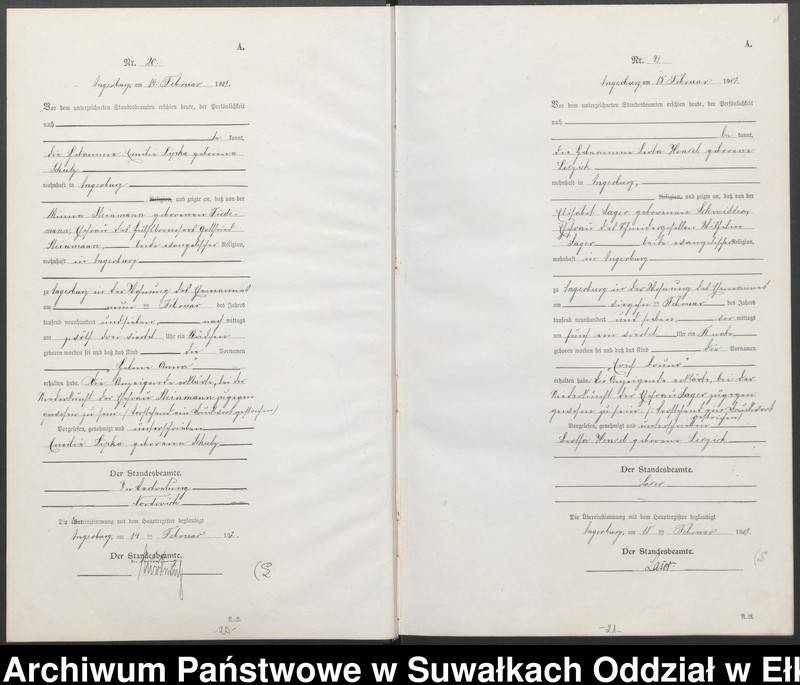 A.
Nr. 20.
Angerburg, am 14 Februar 1907.
Vor dem unterzeichneten Standesbeamten erschien heute, der Persönlichkeit
nach
be kannt,
die Hebamme Emilie Lipka geborene
Schulz
wohnhaft in Angerburg
Religion, und zeigte an, daß von der
Minna Steinmann geborenen
Ehefrau des Gottlieb
Steinmann, beide evangelischer Religion,
wohnhaft in Angerburg
zu Angerburg in der Wohnung des Ehemannes
am neun ten Februar des Jahres
tausend neunhundert und sieben, nach mittags
um zwölf drei viertel Uhr ein Mädchen
geboren worden sei und daß das Kind die Vornamen
"Helene Anna"
erhalten habe. Die Anzeigende erklärte, bei der
Niederkunft der Ehefrau Steinmann zugegen
gewesen zu sein. (Vorstehend ein Druckwort gestrichen)
Vorgelesen, genehmigt und unterschrieben
Emilie Lipka geborene Schulz
Der Standesbeamte.
In Vertretung
Die Übereinstimmung mit dem Hauptregister beglaubigt
Angerburg, am 14 ten Februar 1907.
Der Standesbeamte.
-20-
A.
Nr. 21
Angerburg, am 15 Februar 1907.
Vor dem unterzeichneten Standesbeamten erschien heute, der Persönlichkeit
nach
be kannt,
die Hebamme Hensel geborene
wohnhaft in Angerburg,
Religion, und zeigte an, daß von der
Elisabet Sager geborenen
Ehefrau des Schneidergesellen Wilhelm
Sager beide evangelischer Religion,
wohnhaft in Angerburg
zu Angerburg in der Wohnung des Ehemannes
am vierzehn ten Februar des Jahres
tausend neunhundert und sieben vor mittags
um fünf ein viertel Uhr ein Knabe
geboren worden sei und daß das Kind die Vornamen
"Erich Bruno"
erhalten habe. Die Anzeigende erklärte, bei der
Niederkunft der Ehefrau Sager zugegen
gewesen zu sein. (Vorstehend ein Druckwort
gestrichen)
Vorgelesen, genehmigt und unterschrieben
Hensel geborene
Der Standesbeamte.
Laser
Die Übereinstimmung mit dem Hauptregister beglaubigt
Angerburg, am 15 ten Februar 1907.
Der Standesbeamte.
Laser
-21-
Archiwum Państwowe w Suwałkach Oddział w Ełk